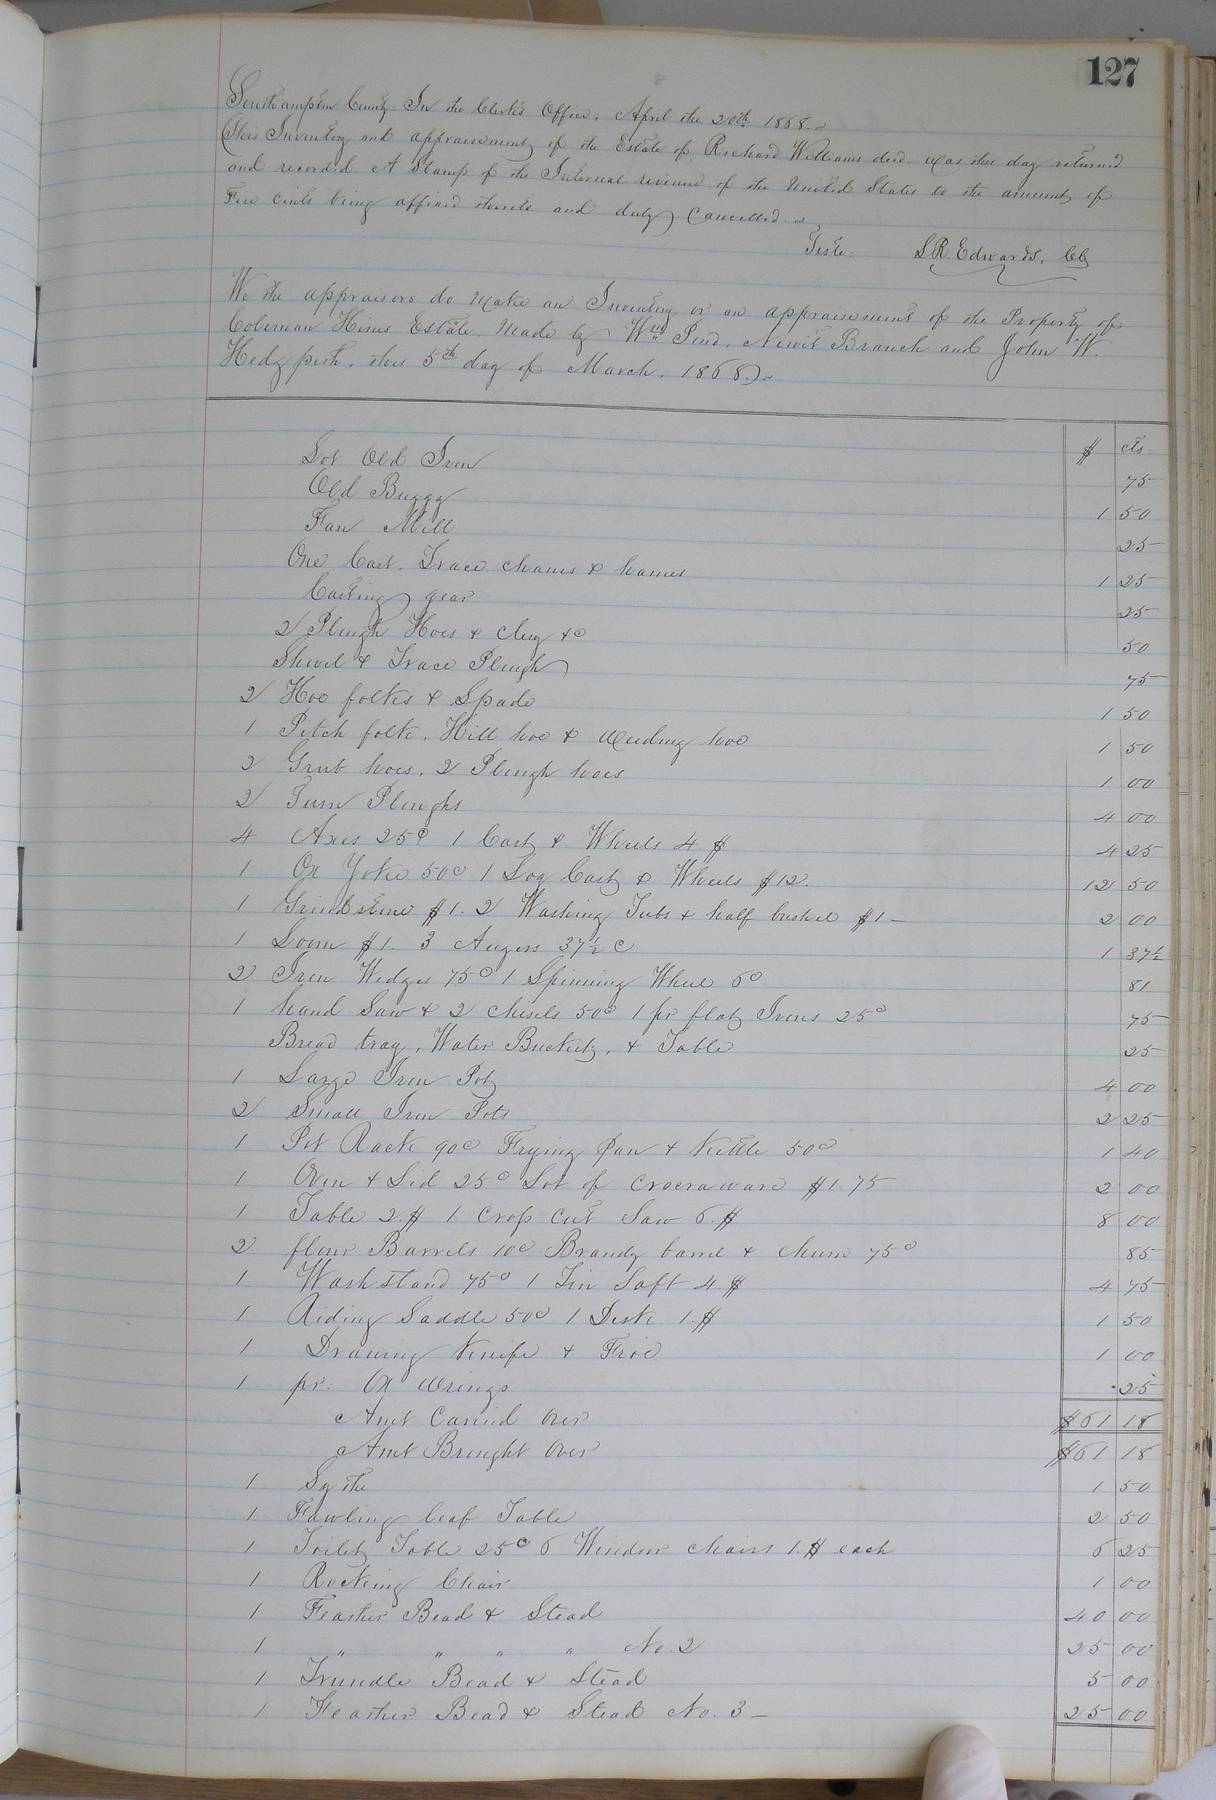 127
Southampton County. In the Clerk's Office. April the 20th 1868.
This Inventory and appraisement of the Estate of Richard Williams decd. was this day returned
and recorded. A Stamp of the Internal revenue of the United States to the amount of
Five cents being affixed thereto and duly cancelled.
Teste: L.R. Edwards, CC
We the appraisors do make an Inventory or an appraisement of the Property of
Coleman Estate Made by Wm Newit Branch and John W.
this 5th day of March. 1868.
$ cts.
Lot Old Iron 75
Old Buggy 1 50
Fan Mill 25
One Cart. Trace chanes & hames 1 25
Carting gear 25
2 Plough Hoes & &c 50
Shovel & Trace Plough 75
2 Hoe folks & Spade 1 50
1 Pitch folk. Hill hoe & weeding hoe 1 50
2 Grub hoes. 2 Plough hoes 1 00
2 Turn Ploughs 4 00
4 Axes 25c 1 Cart & Wheels 4 $ 4 25
1 Ox Yoke 50c 1 Log Cart & Wheels $12. 12 50
1 Grindstone $1. 2 Washing Tubs & half bushel $1 — 2 00
1 Loom $1. 3 Augers 37½ c 1 37½
2 Iron Wedges 75c 1 Spinning Wheel 6c 81
1 hand Saw & 2 chisels 50c 1 pr flat Irons 25c 75
Bread tray, Water Bucket, & Table 25
1 Large Iron Pot 4 00
2 Small Iron Pots 2 25
1 Pot Rack 90c Frying pan & Kettle 50c 1 40
1 Oven & Lid 25c Lot of Crocraware $1.75 2 00
1 Table 2.$ 1 Crop cut Saw 6.$ 8 00
2 flour Barrels 10c Brandy barrel & churn 75c 85
1 Wash stand 75c 1 Tin Saft 4.$ 4 75
1 Riding Saddle 50c 1 Desk 1.$ 1 50
1 Drawing Knife & Froe 1 00
1 pr: Ox Wrings 25
Amt Carried Over $61 18
Amt Brought Over $61 18
1 Sythe 1 50
1 Fawling leaf Table 2 50
1 Toilet Table 25c 6 Windsor chairs 1.$ each 6 25
1 Rocking Chair 1 00
1 Feather Bead & Stead 40 00
1 " " " " No. 2 25 00
1 Trundle Bead & Stead 5 00
1 Feather Bead & Stead No. 3 — 25 00